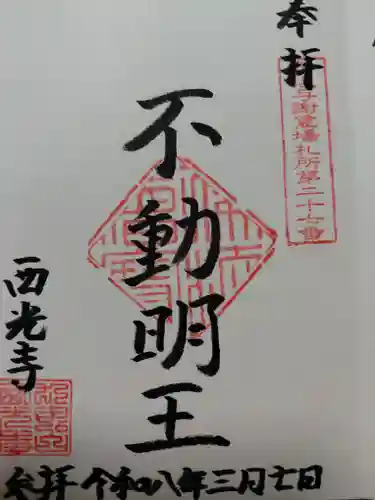 奉拝
与謝霊場札所第二十七番
不動明王
西光寺
参拝 令和八年三月七日